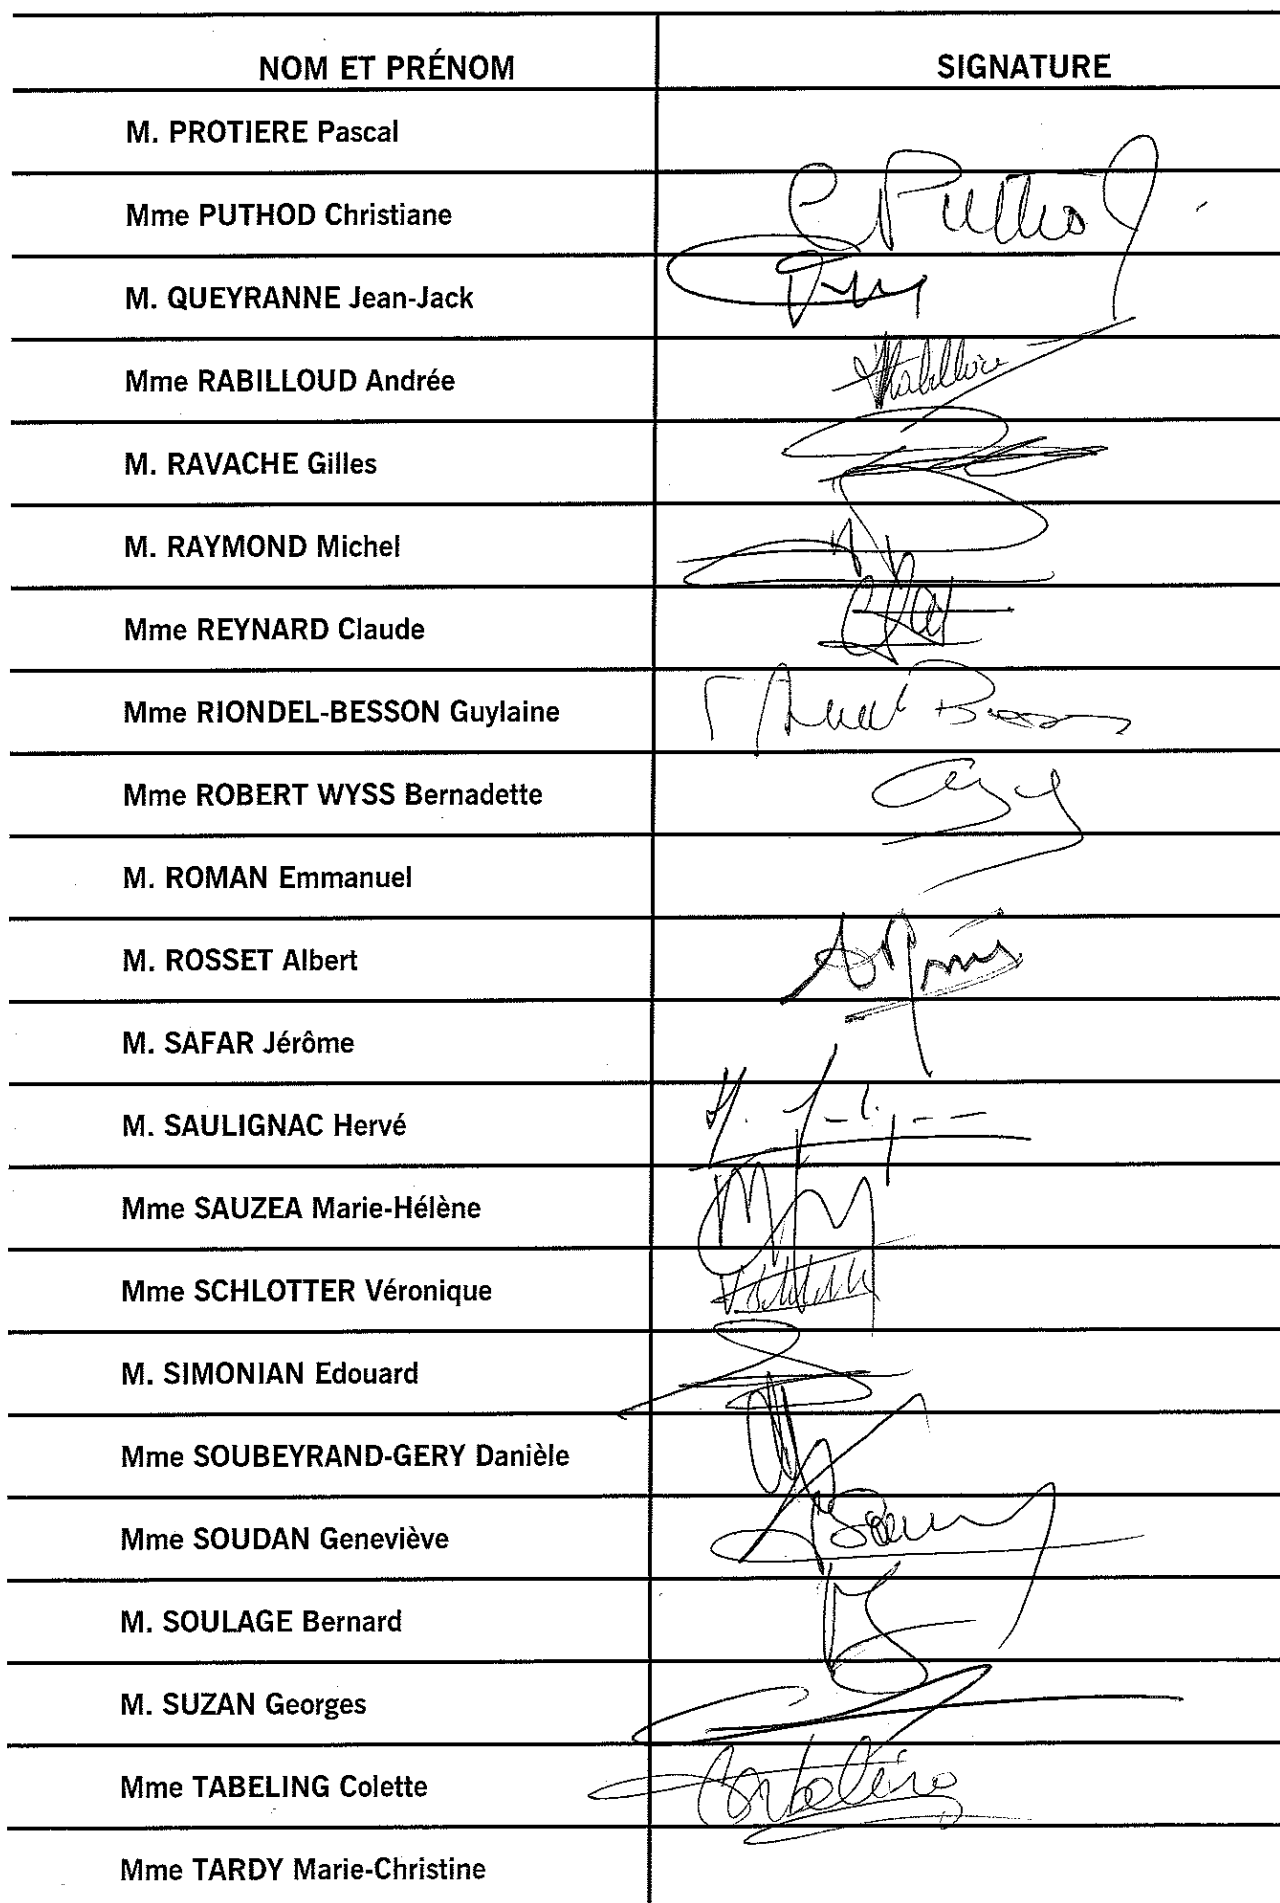 NOM ET PRÉNOM SIGNATURE
M. PROTIERE Pascal
Mme PUTHOD Christiane C Puthod
M. QUEYRANNE Jean-Jack
Mme RABILLOUD Andrée
M. RAVACHE Gilles
M. RAYMOND Michel
Mme REYNARD Claude
Mme RIONDEL-BESSON Guylaine
Mme ROBERT WYSS Bernadette
M. ROMAN Emmanuel
M. ROSSET Albert
M. SAFAR Jérôme
M. SAULIGNAC Hervé
Mme SAUZEA Marie-Hélène
Mme SCHLOTTER Véronique
M. SIMONIAN Edouard
Mme SOUBEYRAND-GERY Danièle
Mme SOUDAN Geneviève
M. SOULAGE Bernard
M. SUZAN Georges
Mme TABELING Colette
Mme TARDY Marie-Christine